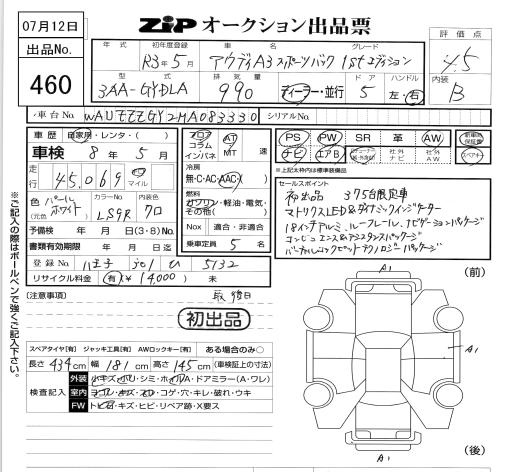 07月12日
出品No.
460
ZIP オークション出品票
評価点
4.5
内装
B
年式
初年度登録
車名
グレード
R3年5月
アウディA3スポーツバック 1stエディション
型式
排気量
ドア
ハンドル
3AA-GYDLA
990
ディーラー・並行
5
左・右
車台No.
WAUZZZGY2MA083330
シリアルNo.
車歴
自家用・レンタ・( )
車検
8年5月
フロア
コラム
インパネ
AT
MT
速
走行
45,069
km
マイル
冷房
無・C・AC・AAC
燃料
ガソリン・軽油・電気・
その他( )
色
(元色)
パール
ホワイト
カラーNo.
LS9R
内装色
クロ
Nox
適合・非適合
予備検
年 月 日(3・8)No.
書類有効期限
年 月 日迄
乗車定員
5名
登録No.
八王子 301 ひ 5132
リサイクル料金
(有)(¥ 14,000 ) 未
(注意事項)
初出品
PS
PW
SR
革
AW
新車時
保証書
ナビ
エアB
社外
ナビ
社外
AW
スペアキー
※上記太枠内は標準装備品
セールスポイント
初出品 375台限定車
マトリクスLED&ダイナミックインジケーター
18インチアルミ、ルーフレール、ナビゲーションパッケージ
コンビニエンス&アシスタンスパッケージ
バーチャルコックピットテクノロジーパッケージ
(前)
A1
A1
A1
(後)
※ご記入の際はボールペンで強くご記入下さい。
スペアタイヤ[有] ジャッキ工具[有] AWロックキー[有] ある場合のみ○
長さ 434cm 幅 181cm 高さ 145cm (車検証上の寸法)
検査記入
外装
小キズ・小凹・シミ・ホイルA・ドアミラー(A・ワレ)
室内
ヨゴレ・キズ・スレ・コゲ・穴・キレ・破れ・ウキ
FW
トビ石・キズ・ヒビ・リペア跡・X要ス